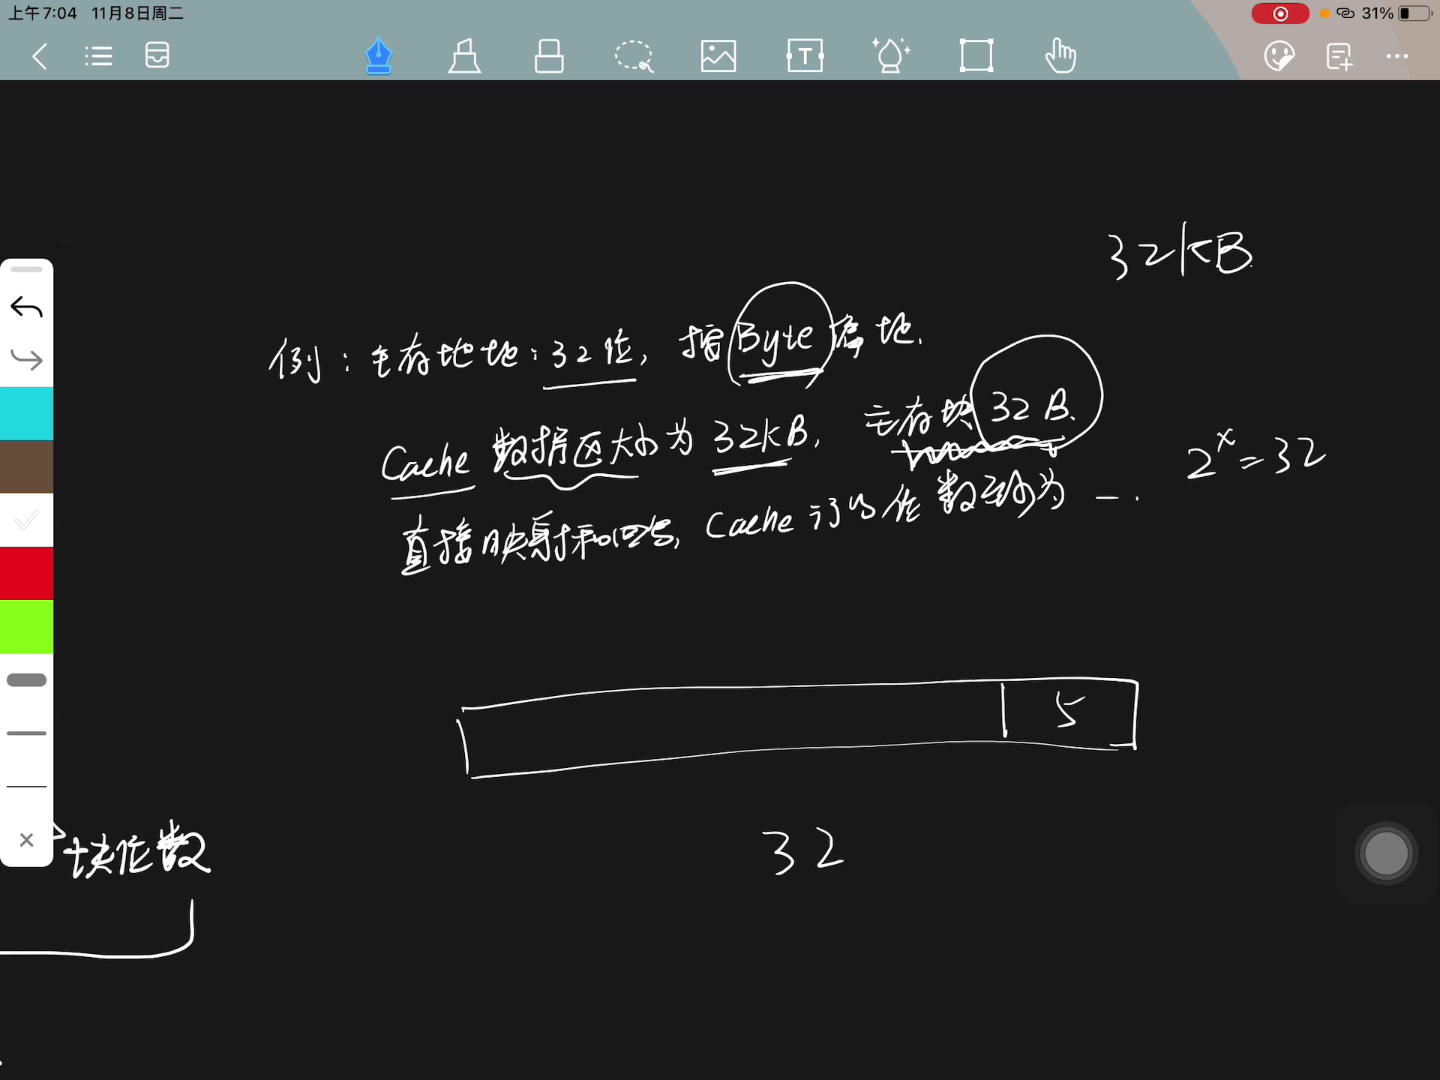 上午7:04 11月8日周二
31%
32KB
例：主存地址：32位，按Byte编址.
Cache 数据区大小为32KB，主存块32B.
2^x=32
直接映射和回写，Cache 行的位数至少为 — .
5
32
块位数